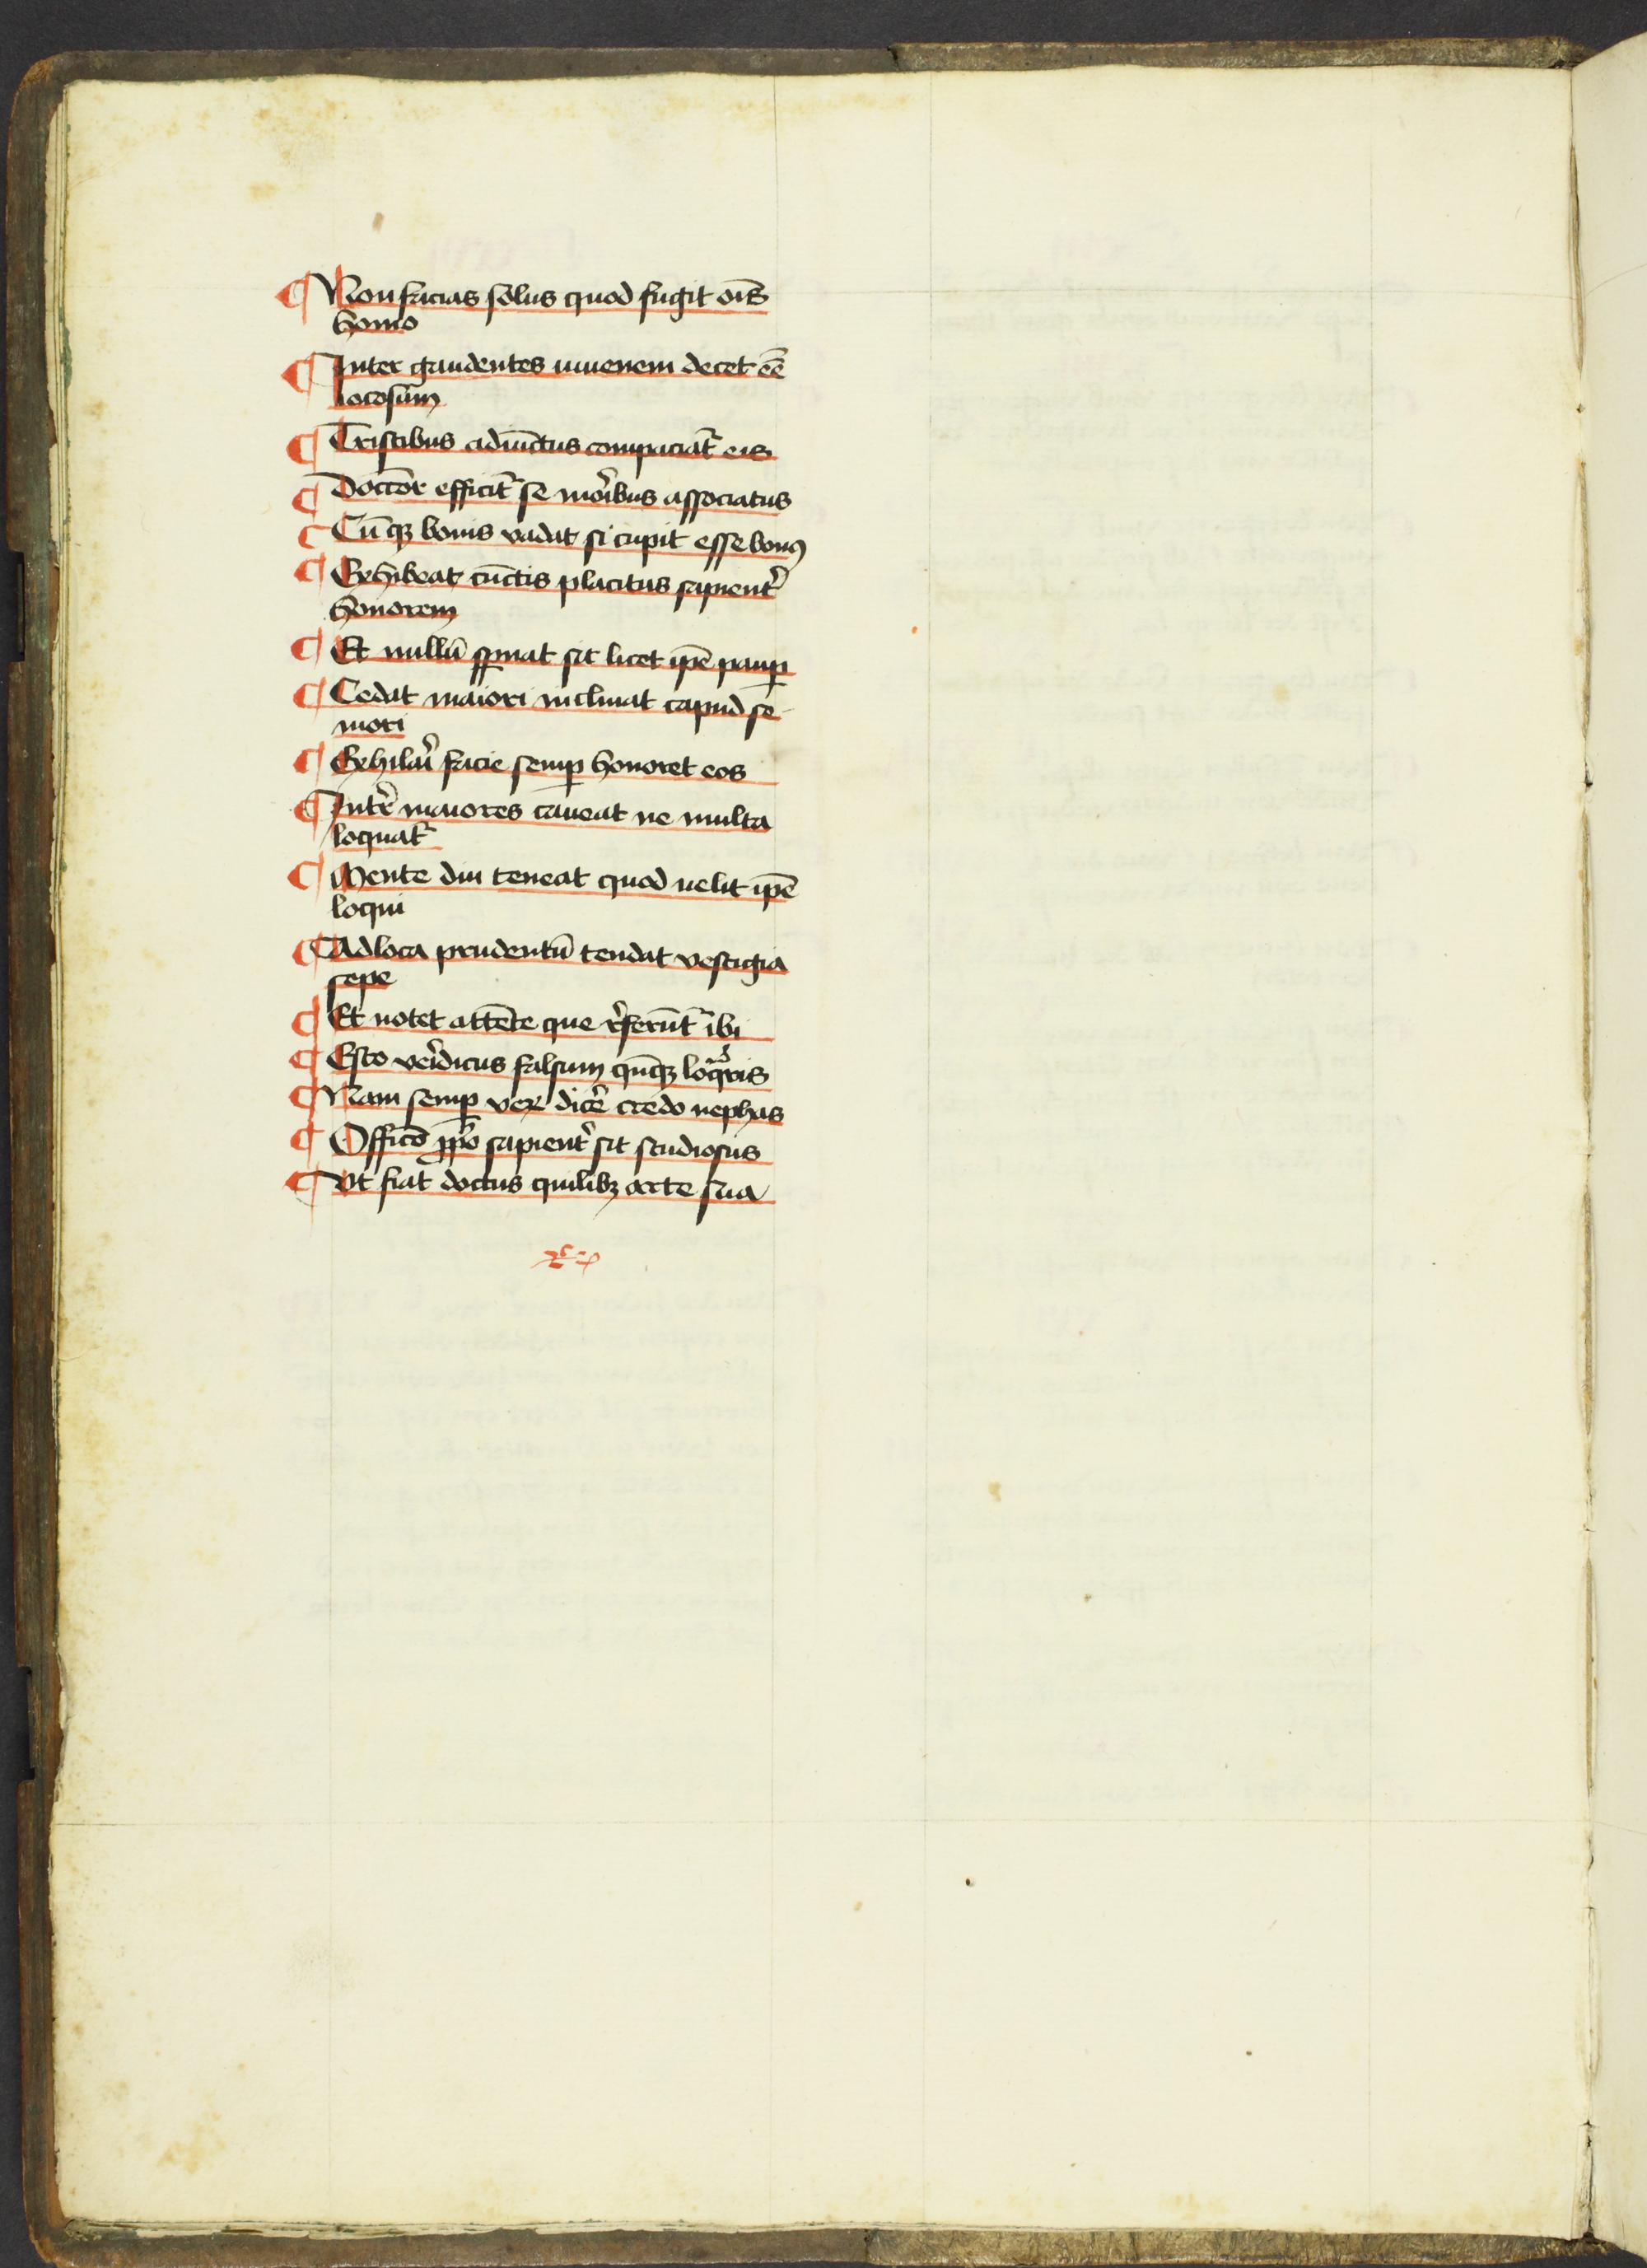 ¶ Non facias solus quod fugit oīs
homo
¶ Inter gaudentes iuuenem decet eē
iocosum
¶ Tristibus adiūctus compaciat᷑ eis
¶ Doctor efficit᷑ se moribus associatus
¶ Cū qꝫ bonis vadat si cupit esse bonꝰ
¶ Exhibeat cūctis placitus sapient᷑
honorem
¶ Et nullū sꝑnat sit licet ip̄e pauꝑ
¶ Cedat maiori inclinat capud se
niori
¶ Exhilari facie semꝑ honoret eos
¶ Int᷑ maiores caueat ne multa
loquat᷑
¶ Mente diu teneat quod uelit ip̄e
loqui
¶ Ad loca prudentū tendat vestigia
sepe
¶ Et notet attēte que r̄ferūt᷑ ibi
¶ Esto veridicus falsum qūqꝫ loq̄ris
¶ Nam semꝑ dic̄e credo nephas
¶ Officō ꝓp̄o sapient᷑ sit studiosus
¶ Vt fiat doctus quilibꝫ arte sua